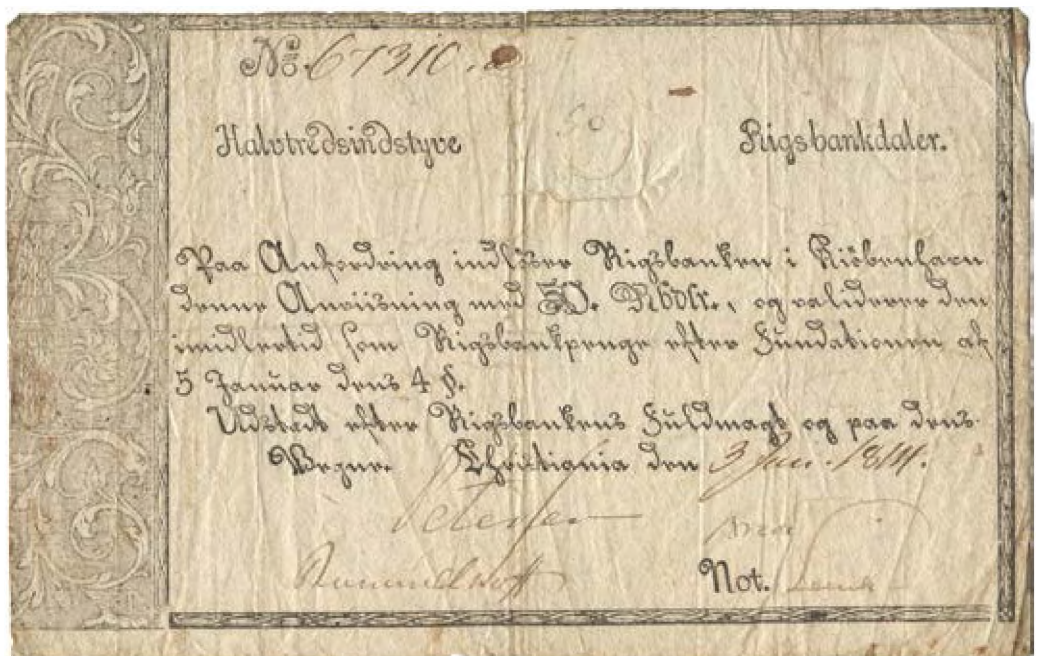 No. 67310.
50
Halvtredsindstyve Rigsbankdaler.
Paa Anfordring indlöser Rigsbanken i Kiöbenhavn
denne Anviisning med 50. Rbdlr., og validerer den
imidlertid som Rigsbankpenge efter Fundationen af
5 Januar dens 4 §.
Udstedt efter Rigsbankens Fuldmagt og paa dens
Vegne. Christiania den 3 Jan. 1814.
Petersen
Rummelhoff Not.